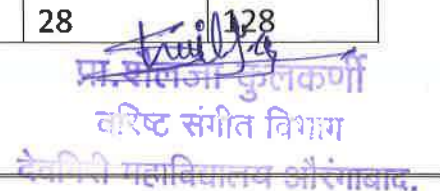 28 128
प्रा. शैलजा कुलकर्णी
वरिष्ट संगीत विभाग
देवगिरी महाविद्यालय औरंगाबाद.